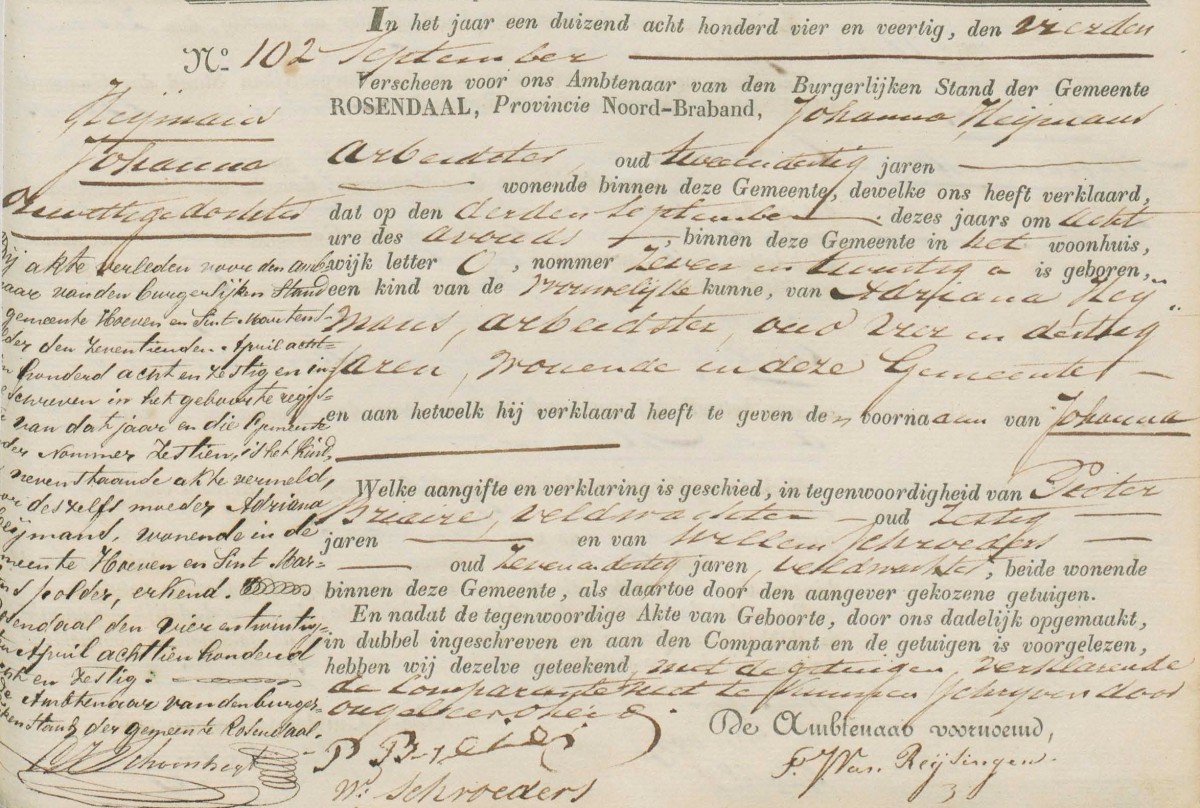 In het jaar een duizend acht honderd vier en veertig, den vierden
No. 102 September
Verscheen voor ons Ambtenaar van den Burgerlijken Stand der Gemeente
ROSENDAAL, Provincie Noord-Braband, Johanna Heijmans
arbeidster, oud twee en dertig jaren
wonende binnen deze Gemeente, dewelke ons heeft verklaard,
dat op den derden September dezes jaars om acht
ure des avonds, binnen deze Gemeente in het woonhuis,
wijk letter C, nommer Zeven en twintig a is geboren,
een kind van de vrouwelijke kunne, van Adriana Heij"
mans, arbeidster, oud vier en dertig
Jaren, wonende in deze Gemeente
en aan hetwelk hij verklaard heeft te geven den voornaam van Johanna
Welke aangifte en verklaring is geschied, in tegenwoordigheid van Pieter
veldwachter oud Zestig
jaren en van Willem Schroeders
oud Zeven en dertig jaren, veldwachter, beide wonende
binnen deze Gemeente, als daartoe door den aangever gekozene getuigen.
En nadat de tegenwoordige Akte van Geboorte, door ons dadelijk opgemaakt,
in dubbel ingeschreven en aan den Comparant en de getuigen is voorgelezen,
hebben wij dezelve geteekend met de getuigen verklarende
de Comparante niet te kunnen schrijven door
ongeleerdheid.
De Ambtenaar voornoemd,
F. Van Reijsingen.
W. Schroeders
Heijmans
Johanna
Onwettige dochter
Bij akte verleden voor den amb
naar van den burgerlijken Stand
gemeente Hoeven en Sint Maartens-
der den Zeventienden April acht-
honderd acht en Zestig en in
schreven in het geboorte regis-
van dat jaar en die Gemeente
der Nommer Zestien, is het kind,
nevenstaande akte vermeld,
deszelfs moeder Adriana
Heijmans, wonende in de
meente Hoeven en Sint Mar-
s polder, erkend.
sendaal den vier en twintig-
April achttienhonderd
en Zestig.
Ambtenaar van den burger-
ken Stand der gemeente Rosendaal.